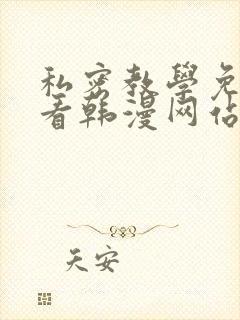 私密教學免
看韩漫网佔
天安